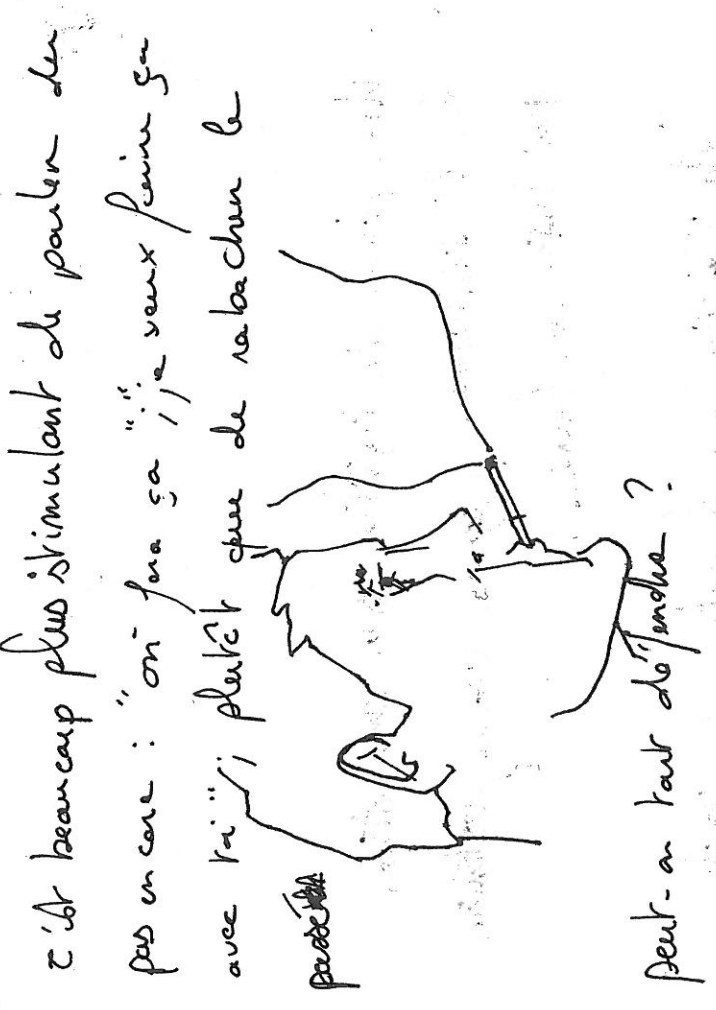 c'est beaucoup plus stimulant de parler des
pas encore : "on fera ça" ; "je veux faire ça
avec toi", plutôt que de rabacher le
passé
peut-on tout défendre ?